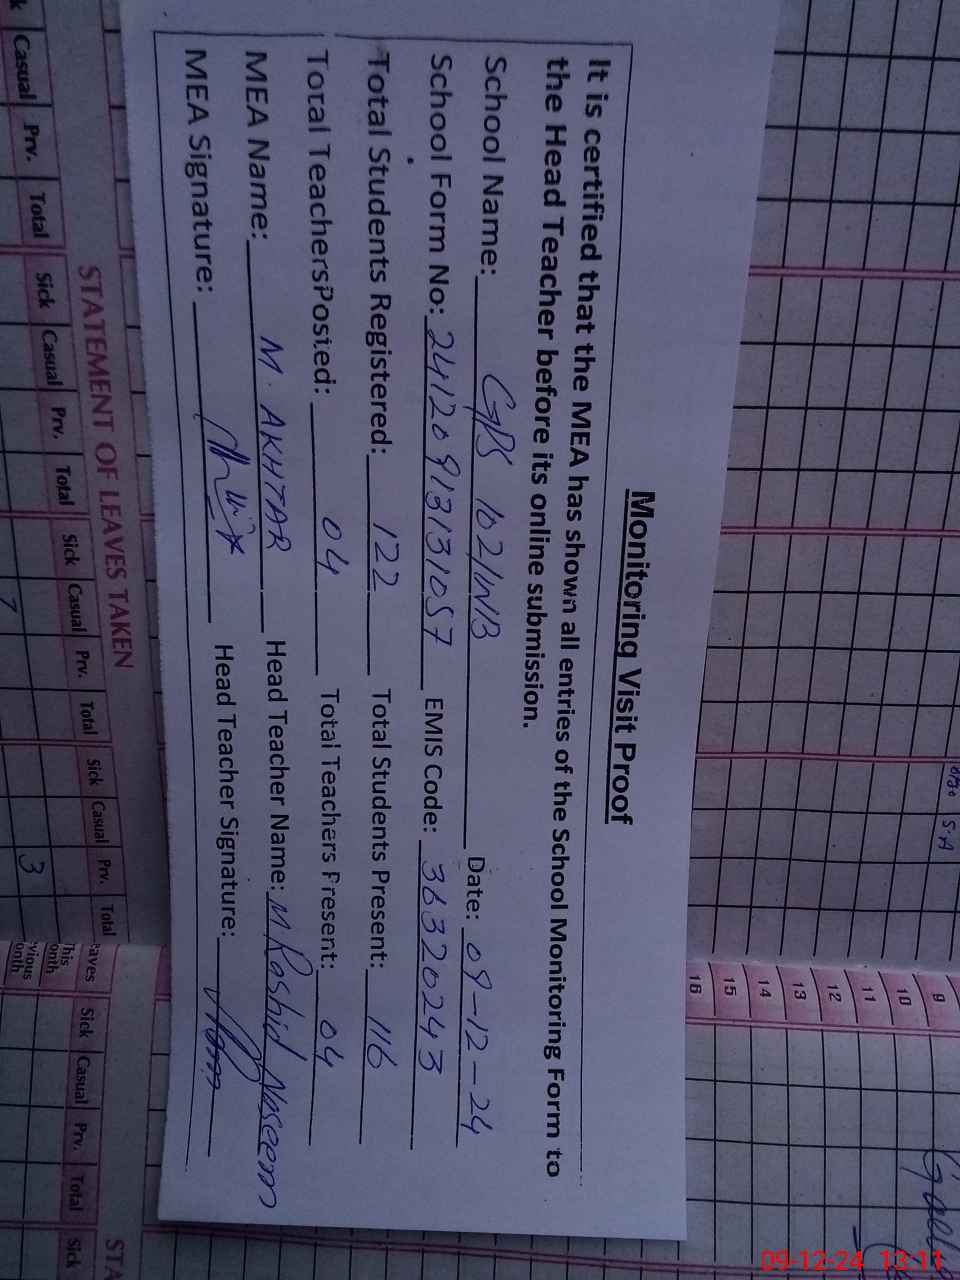 Monitoring Visit Proof
It is certified that the MEA has shown all entries of the School Monitoring Form to
the Head Teacher before its online submission.
School Name: GPS 102/WB Date: 09-12-24
School Form No: 24120913131057 EMIS Code: 36320243
Total Students Registered: 122 Total Students Present: 116
Total Teachers Posted: 04 Total Teachers Present: 04
MEA Name: M. AKHTAR Head Teacher Name: M Rashid Naseem
MEA Signature: Head Teacher Signature:
STATEMENT OF LEAVES TAKEN
Casual Prv. Total Sick Casual Prv. Total Sick Casual Prv. Total Sick Casual Prv. Total
3
eaves
This
onth
vious
onth
Sick Casual Prv. Total Sick
STA
9
10
11
12
13
14
15
16
S.A
09-12-24 13:11